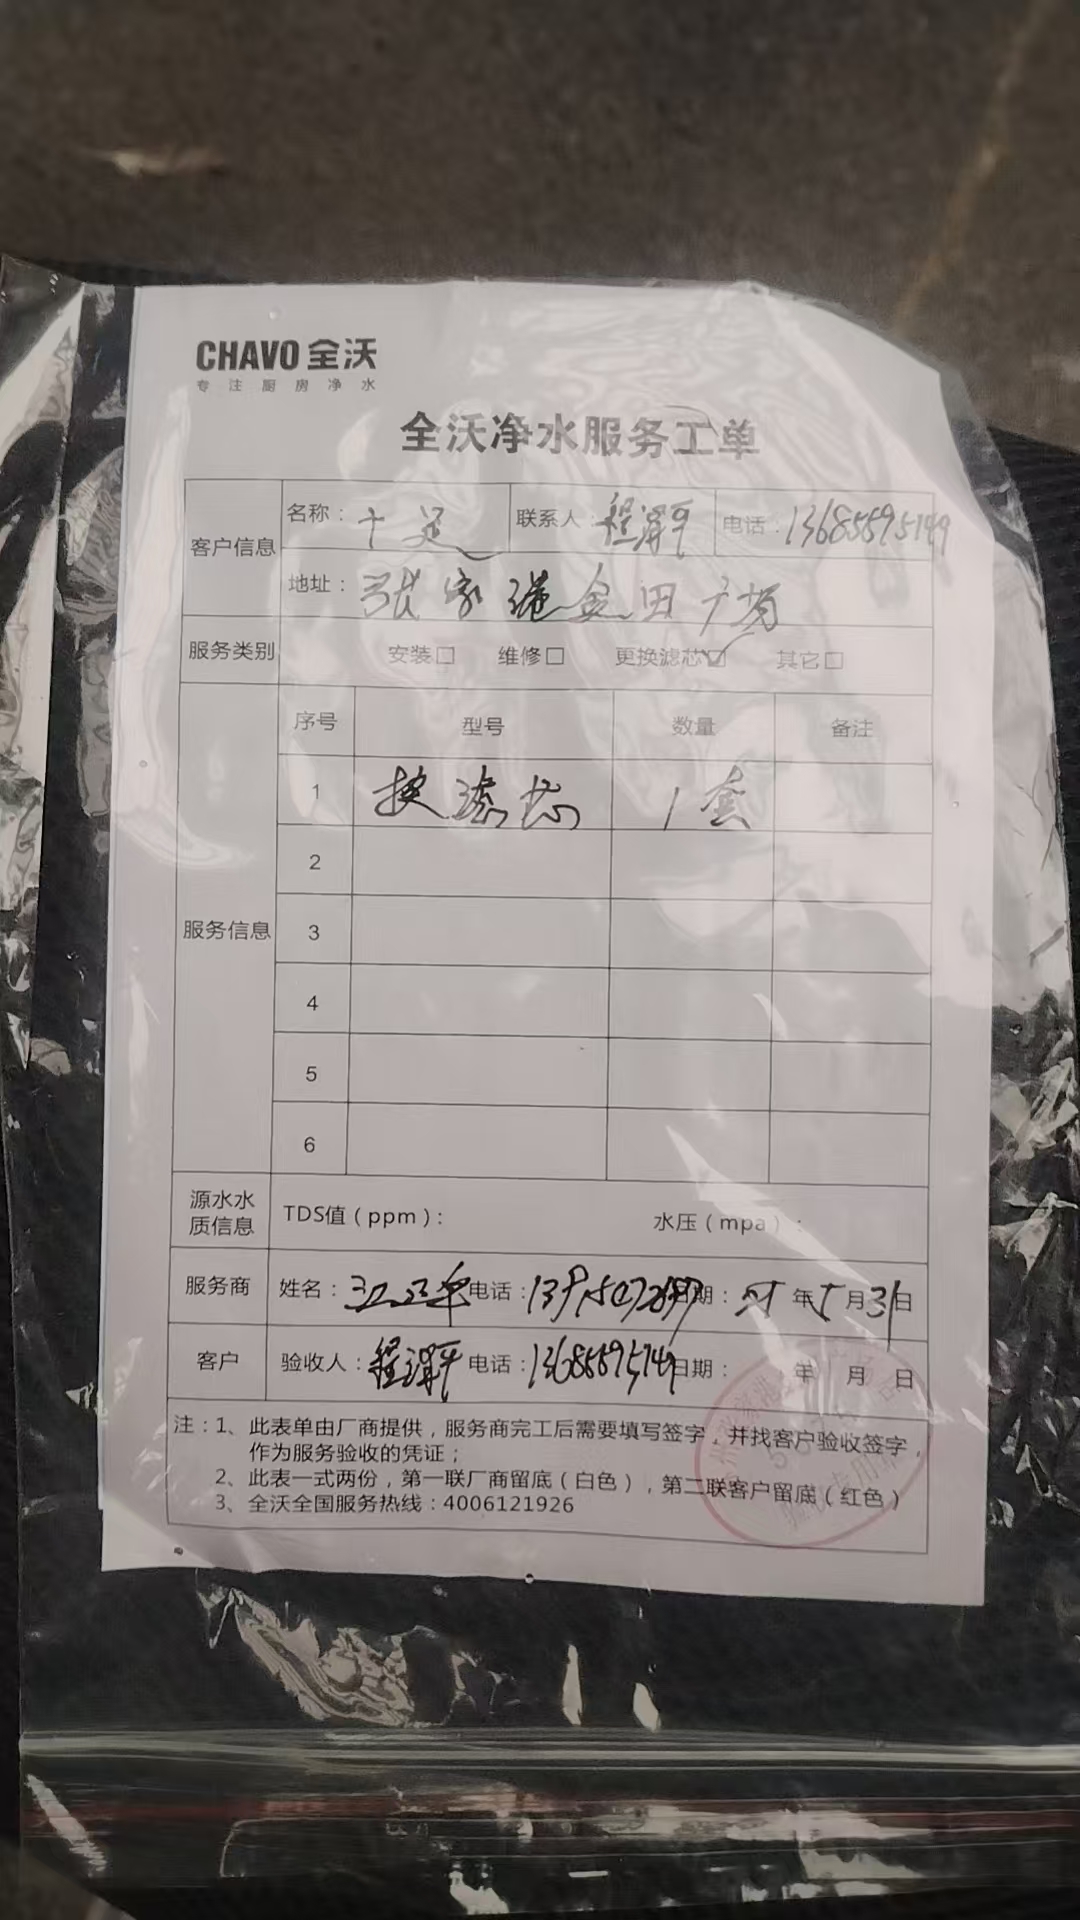 CHAVO 全沃
专注厨房净水
全沃净水服务工单
客户信息 名称：十足 联系人：程 平 电话：13685595149
地址：张家港金田广场
服务类别 安装□ 维修□ 更换滤芯☑ 其它□
服务信息 序号 型号 数量 备注
1 换滤芯 1套
2
3
4
5
6
源水水质信息 TDS值（ppm）： 水压（mpa）：
服务商 姓名： 电话： 日期： 年5月31日
客户 验收人：程 平 电话：13685595149 日期： 年 月 日
注：1、此表单由厂商提供，服务商完工后需要填写签字，并找客户验收签字，
作为服务验收的凭证；
2、此表一式两份，第一联厂商留底（白色），第二联客户留底（红色）
3、全沃全国服务热线：4006121926